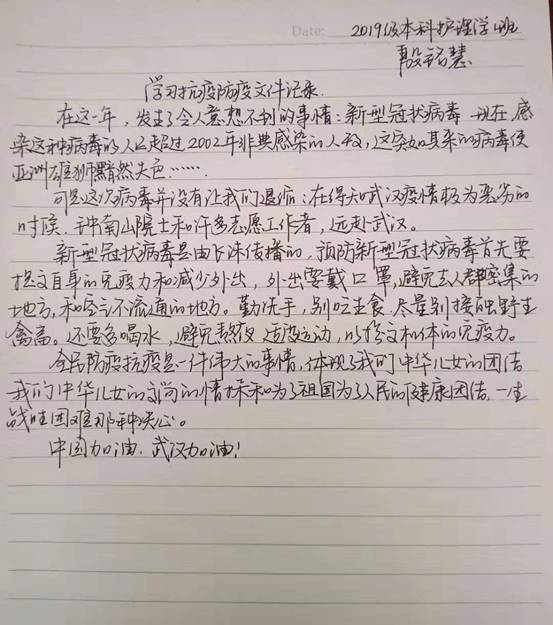 Date:
2019级本科护理学4班
殷铭慧
学习抗疫防疫文件记录.
在这一年，发生了令人意想不到的事情：新型冠状病毒 现在,感
染这种病毒的人已超过2002年非典感染的人数，这突如其来的病毒使
亚洲雄狮黯然失色……
可是这次病毒并没有让我们退缩：在得知武汉疫情极为恶劣的
时候.钟南山院士和许多志愿工作者，远赴武汉。
新型冠状病毒是由飞沫传播的，预防新型冠状病毒首先要
提高自身的免疫力和减少外出，外出要戴口罩,避免去人群密集的
地方,和空气不流通的地方。勤洗手，别吃生食.尽量别接触野生
禽畜。还要多喝水，避免熬夜 适度运动，以提高机体的免疫力。
全民防疫抗疫是一件伟大的事情,体现了我们中华儿女的团结
我们中华儿女的高尚的情操和为了祖国为了人民的健康团结一生
战胜困难那种决心。
中国加油.武汉加油!